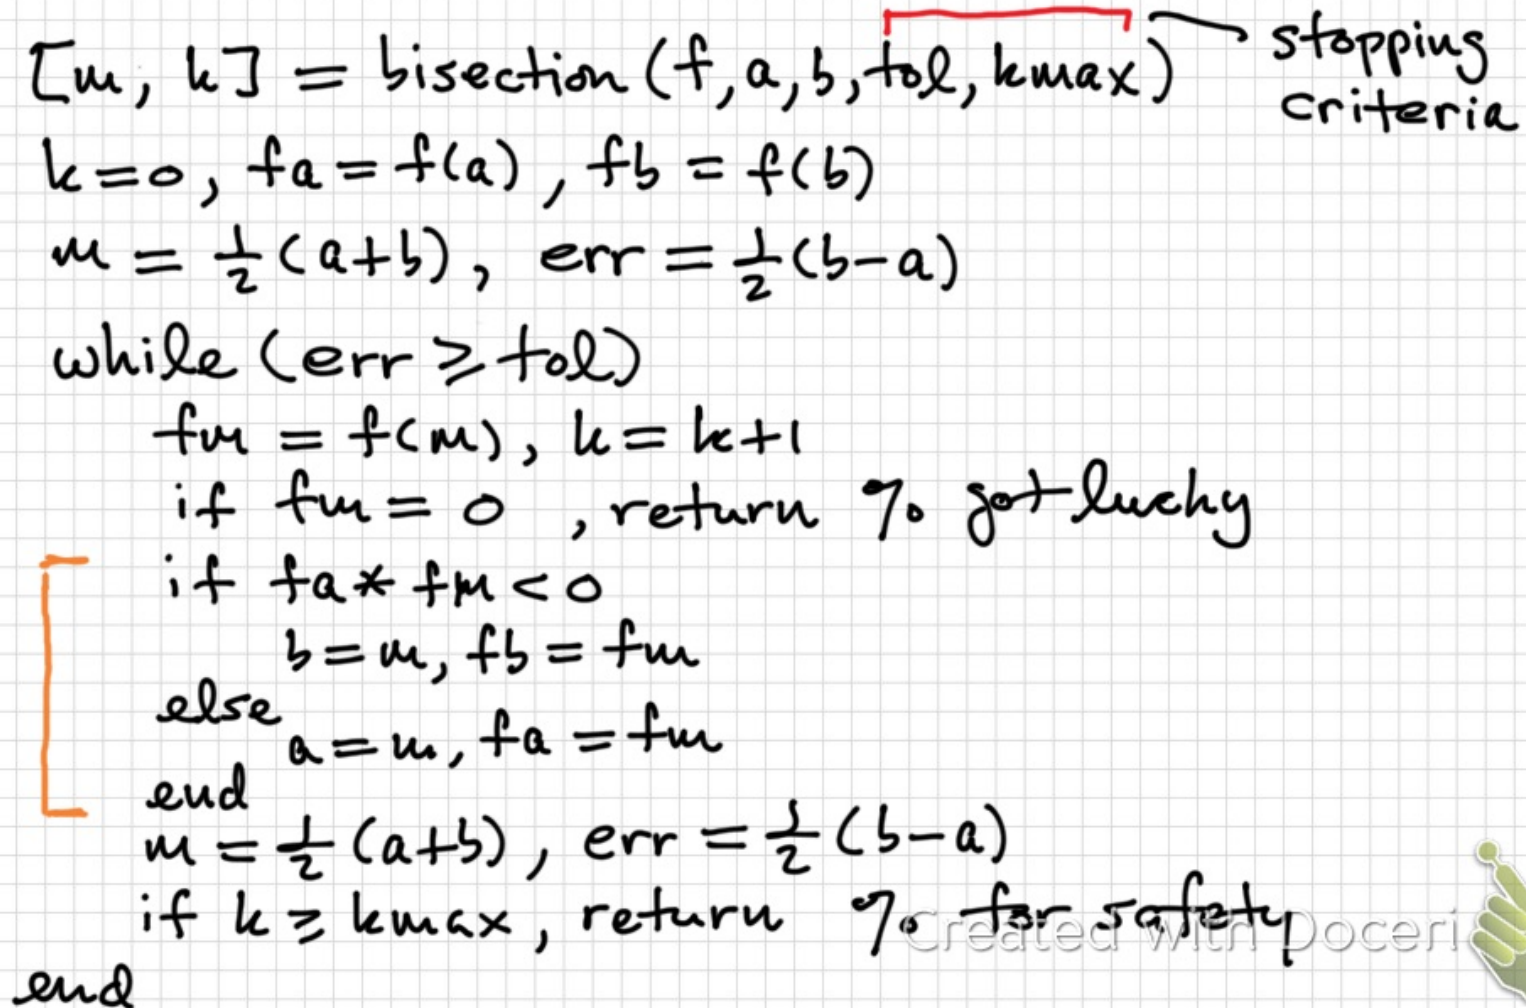 [m, k] = bisection (f, a, b, tol, kmax) stopping
criteria
k=0, fa = f(a), fb = f(b)
m = 1/2 (a+b), err = 1/2 (b-a)
while (err ≥ tol)
fm = f(m), k = k+1
if fm = 0 , return % got lucky
if fa * fm < 0
b = m, fb = fm
else
a = m, fa = fm
end
m = 1/2 (a+b), err = 1/2 (b-a)
if k ≥ kmax, return % for safety
Created with Doceri
end